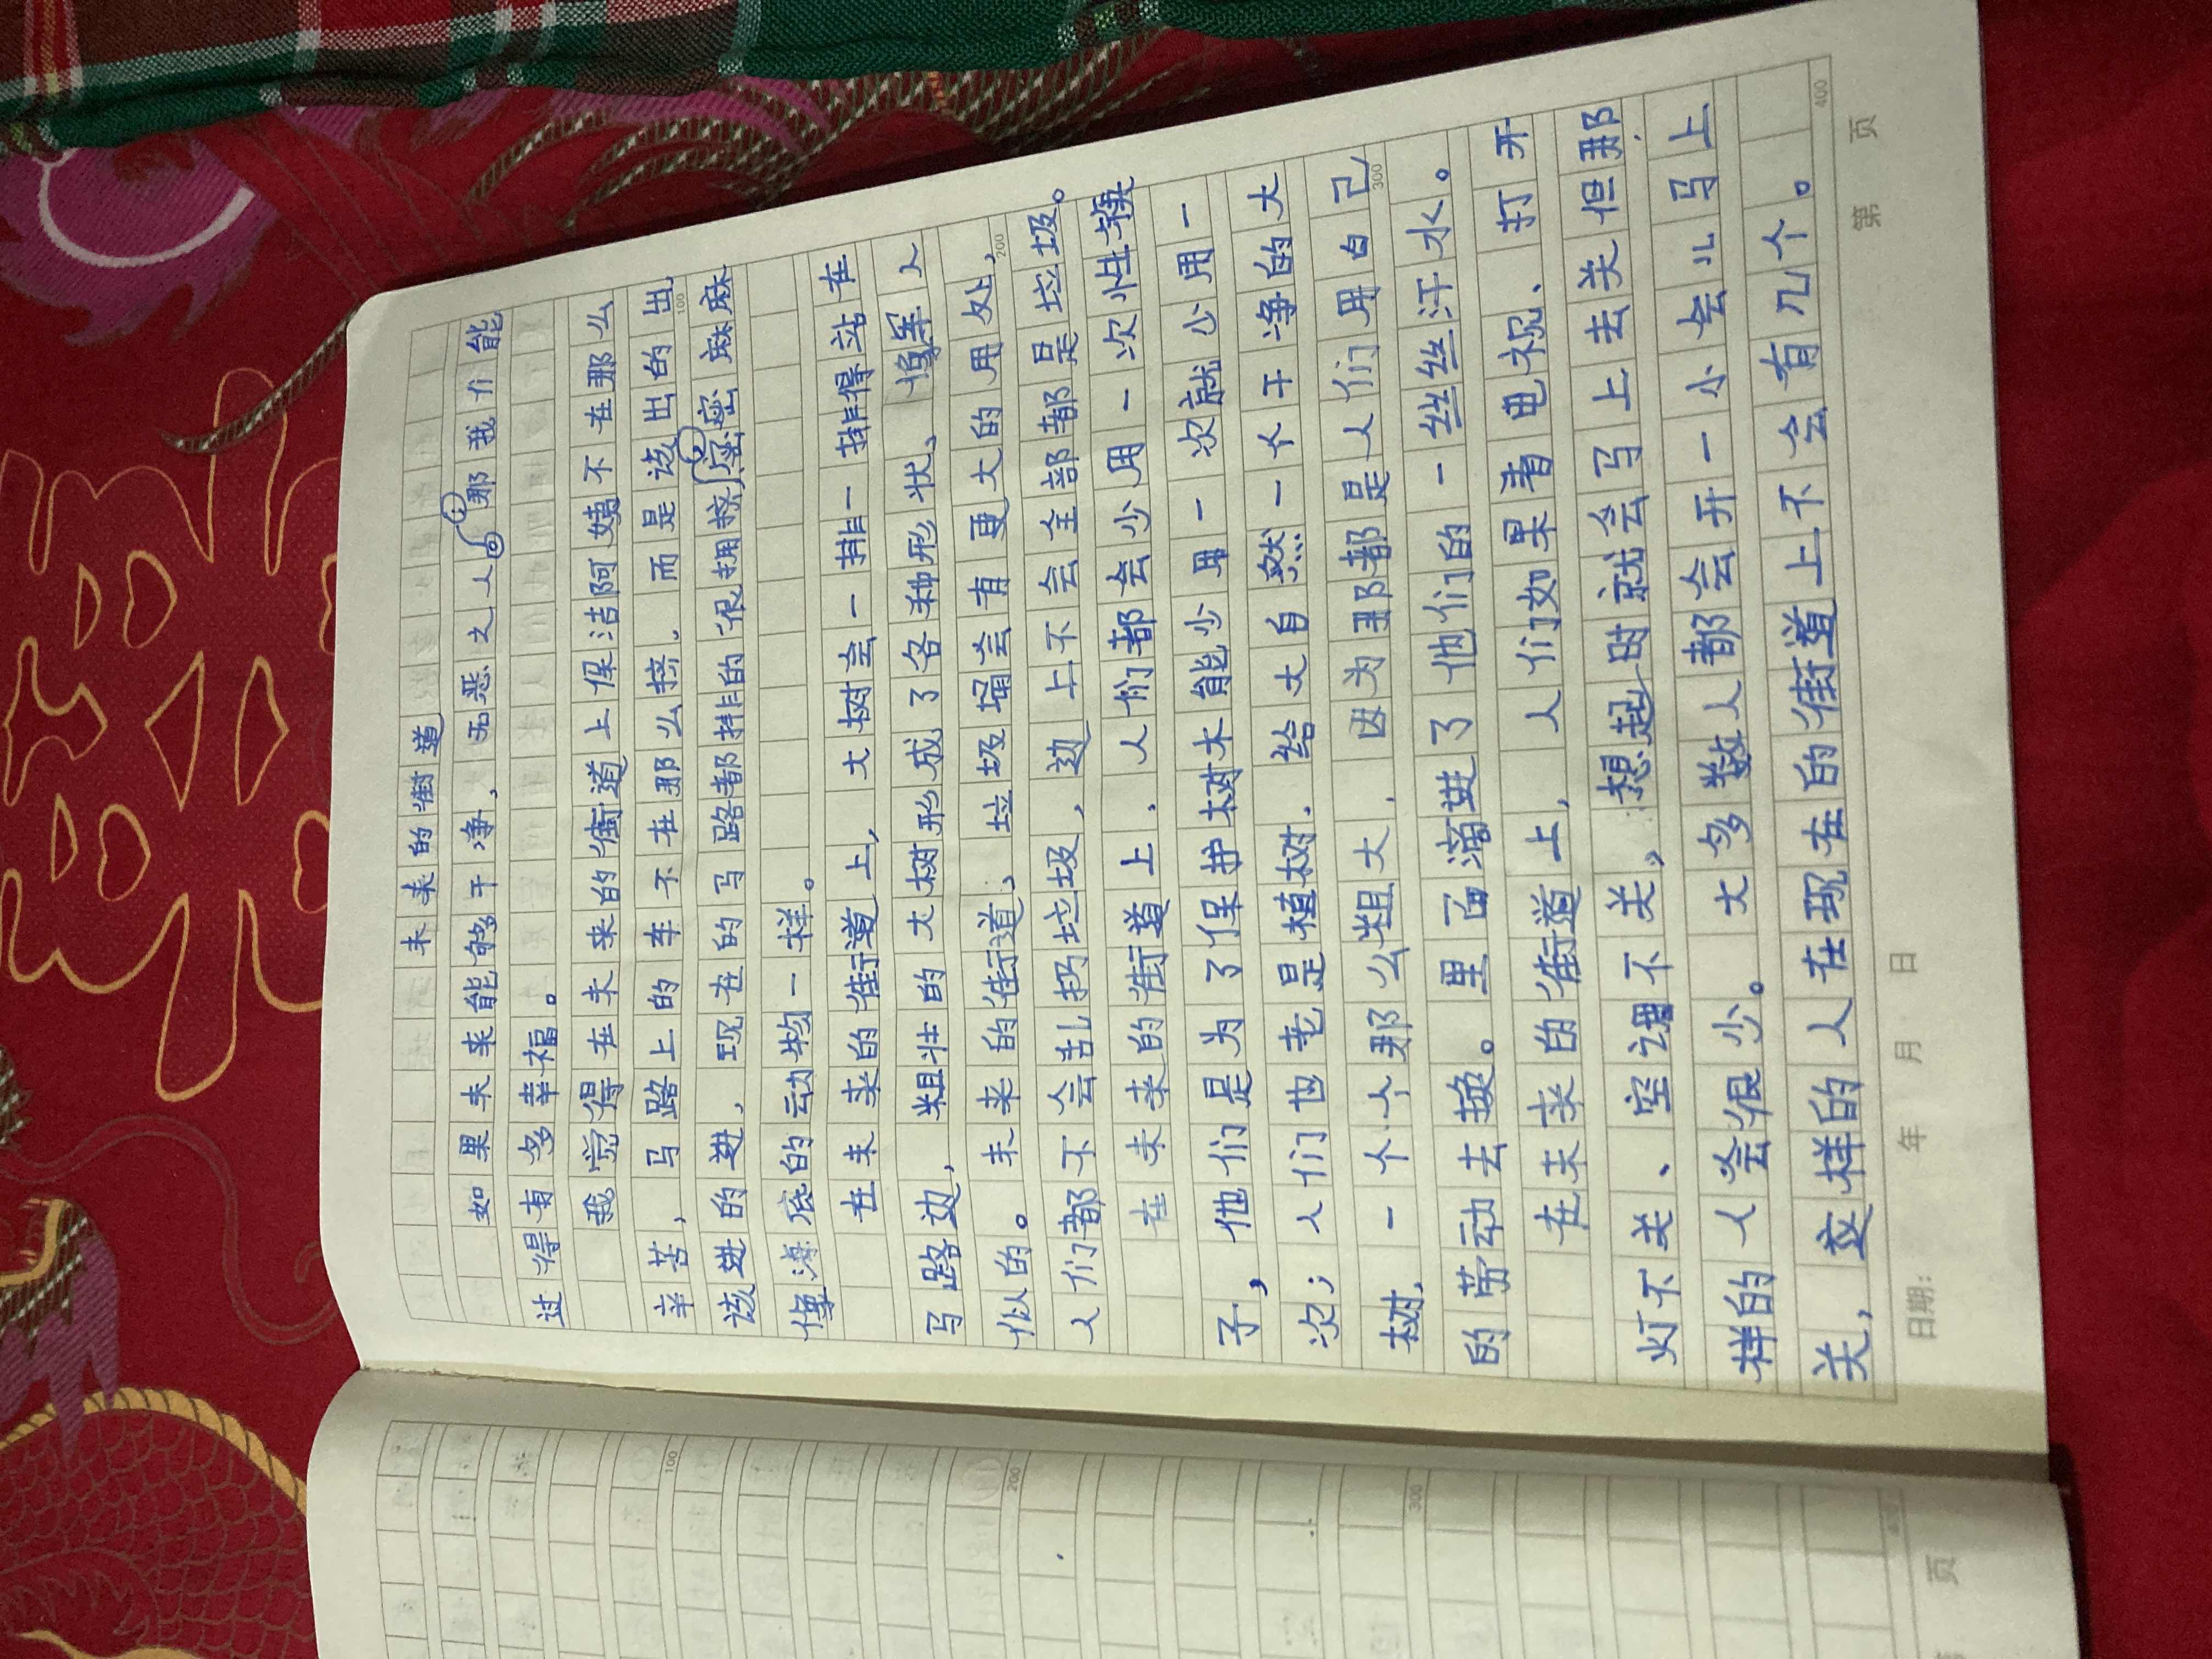 未来的街道
如果未来能够干净,无恶之人,那我们能
过得有多幸福。
我觉得在未来的街道上保洁阿姨不在那么
辛苦,马路上的车不在那么挤。而是该出的出
该进的进,现在的马路都排的很拥挤密密麻麻
像海底的动物一样。
在未来的街道上,大树会一排一排得站在
马路边,粗壮的大树形成了各种形状、像军人
似的。未来的街道、垃圾桶会有更大的用处,
人们都不会乱扔垃圾,边上不会全部都是垃圾。
在未来的街道上,人们都会少用一次性筷
子,他们是为了保护树木能少用一次就少用一
次;人们也老是植树.给大自然一个干净的大
树,一个个那么粗大,因为那都是人们用自己
的劳动去换。里面滴进了他们的一丝丝汗水。
在未来的街道上,人们如果看电视、打开
灯不关、空调不关,想起时就会马上去关但那
样的人会很少。大多数人都会开一小会儿马上
关,这样的人在现在的街道上不会有几个。
100
200
300
400
日期: 年 月 日
第 页
100
200
300
页